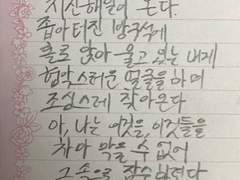 지진해일이 온다.
좁아터진 방구석에
홀로 앉아 울고 있는 내게
험악스러운 얼굴을 하며
조심스레 찾아온다
아, 나는 이것을, 이것들을
차마 막을 수 없어
그 속으로 잠수하련다